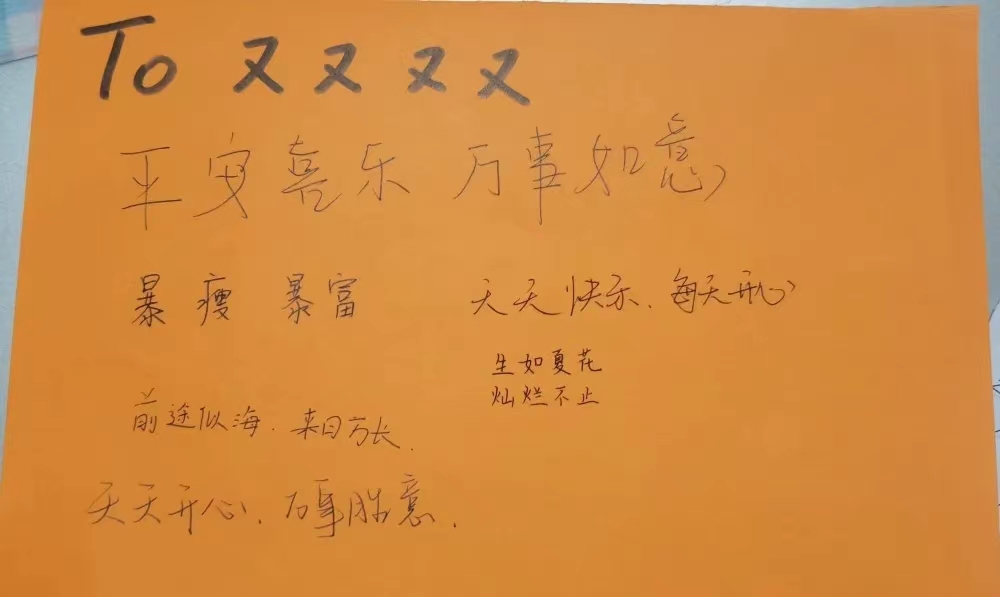 To 又又又又
平安喜乐 万事如意
暴瘦 暴富
天天快乐、每天开心
生如夏花
灿烂不止
前途似海、来日方长、
天天开心、万事胜意、